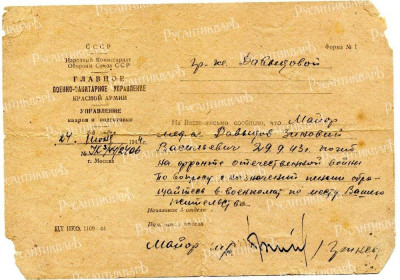 СССР
Народный Комиссариат
Обороны Союза ССР
ГЛАВНОЕ
ВОЕННО-САНИТАРНОЕ УПРАВЛЕНИЕ
КРАСНОЙ АРМИИ
УПРАВЛЕНИЕ
кадров и подготовки
г. Москва
Форма № 1
гр-ке Давыдовой
На Ваше письмо сообщаю, что Майор
Давыдов Зиновий
Васильевич 29 9 43 г. погиб
на фронте отечественной войны
по вопросу назначения пенсии обра-
щайтесь в военкомат по месту Вашего
жительства.
Начальник отдела
Майор
РУСАНТИКВАРЪ